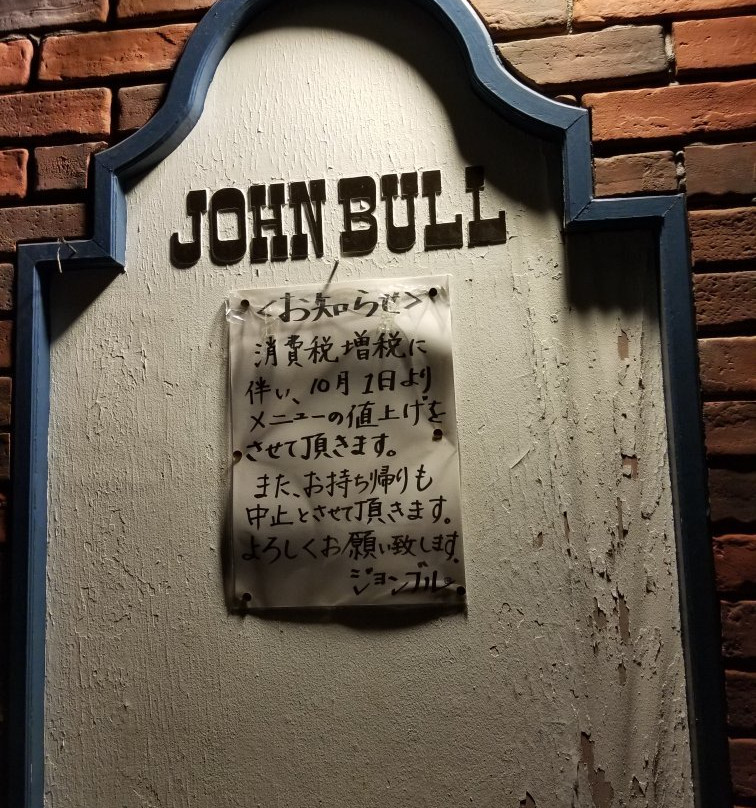 JOHN BULL
<お知らせ>
消費税増税に
伴い、10月1日より
メニューの値上げを
させて頂きます。
また、お持ち帰りも
中止とさせて頂きます。
よろしくお願い致します。
ジョンブル